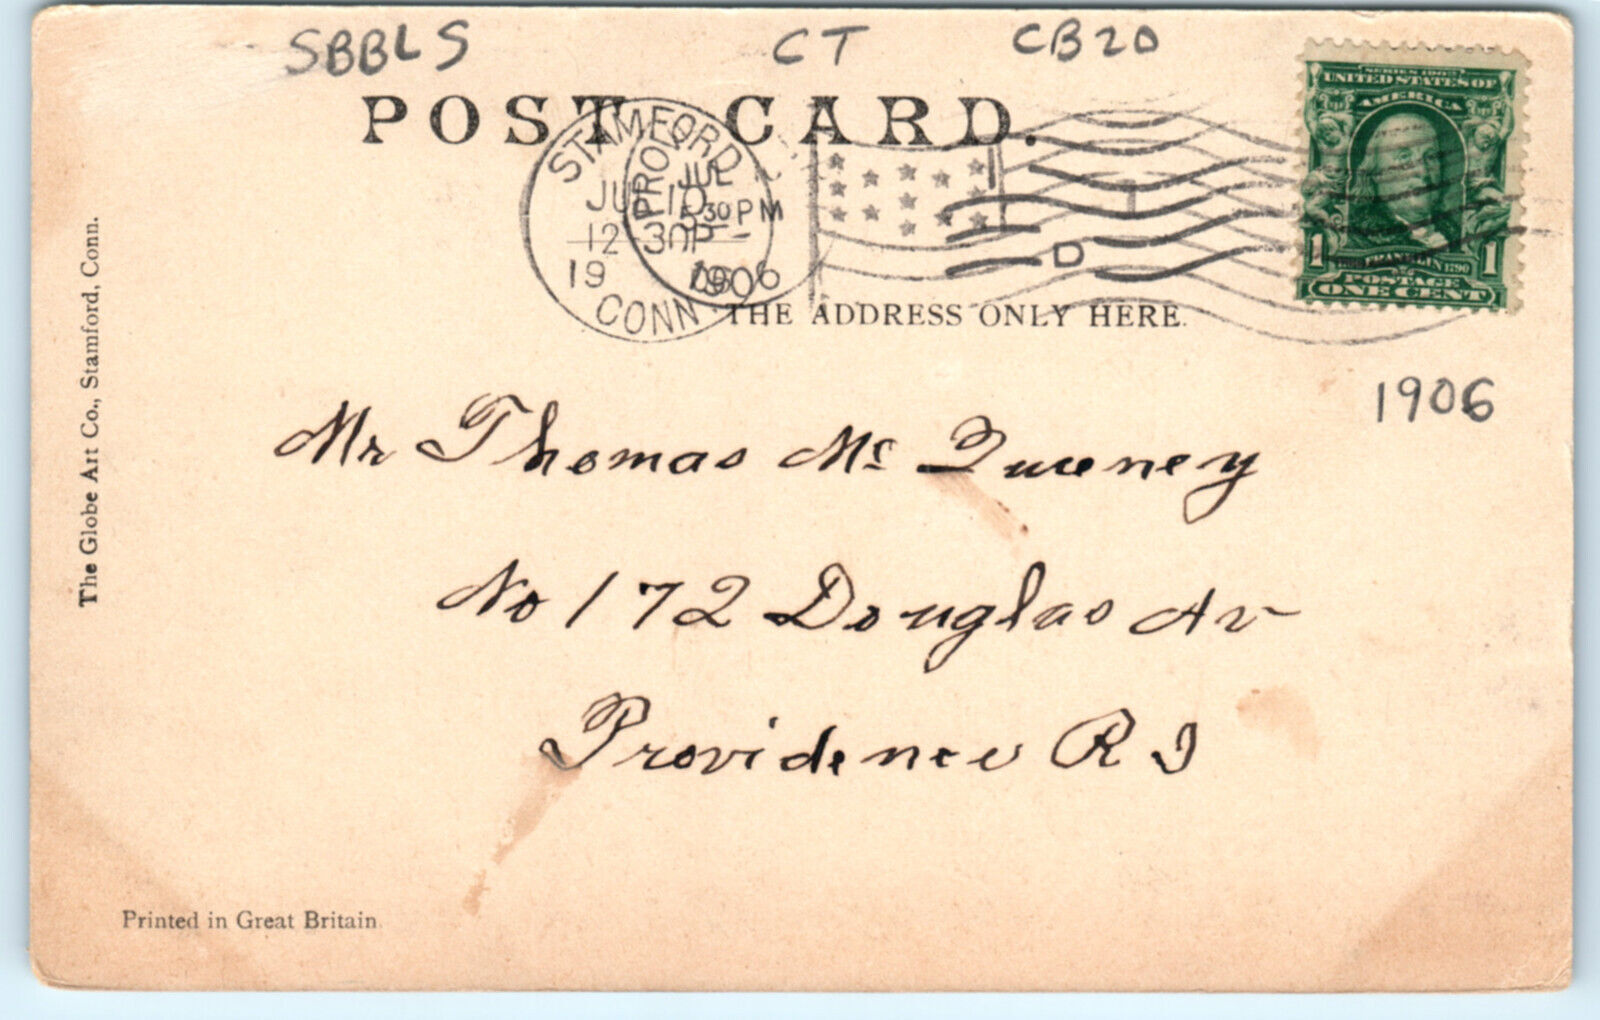 SBBLS CT CB20
POST CARD.
STAMFORD
CONN
JUL 10
12-30P
19 06
PROV
JUL
5 30 PM
1906
D
1
SERIES 1902
UNITED STATES OF
AMERICA
FRANKLIN 1790
1 POSTAGE 1
ONE CENT
THE ADDRESS ONLY HERE.
1906
Mr Thomas Mc Queeney
No 172 Douglas Av
Providence R I
The Globe Art Co., Stamford, Conn.
Printed in Great Britain